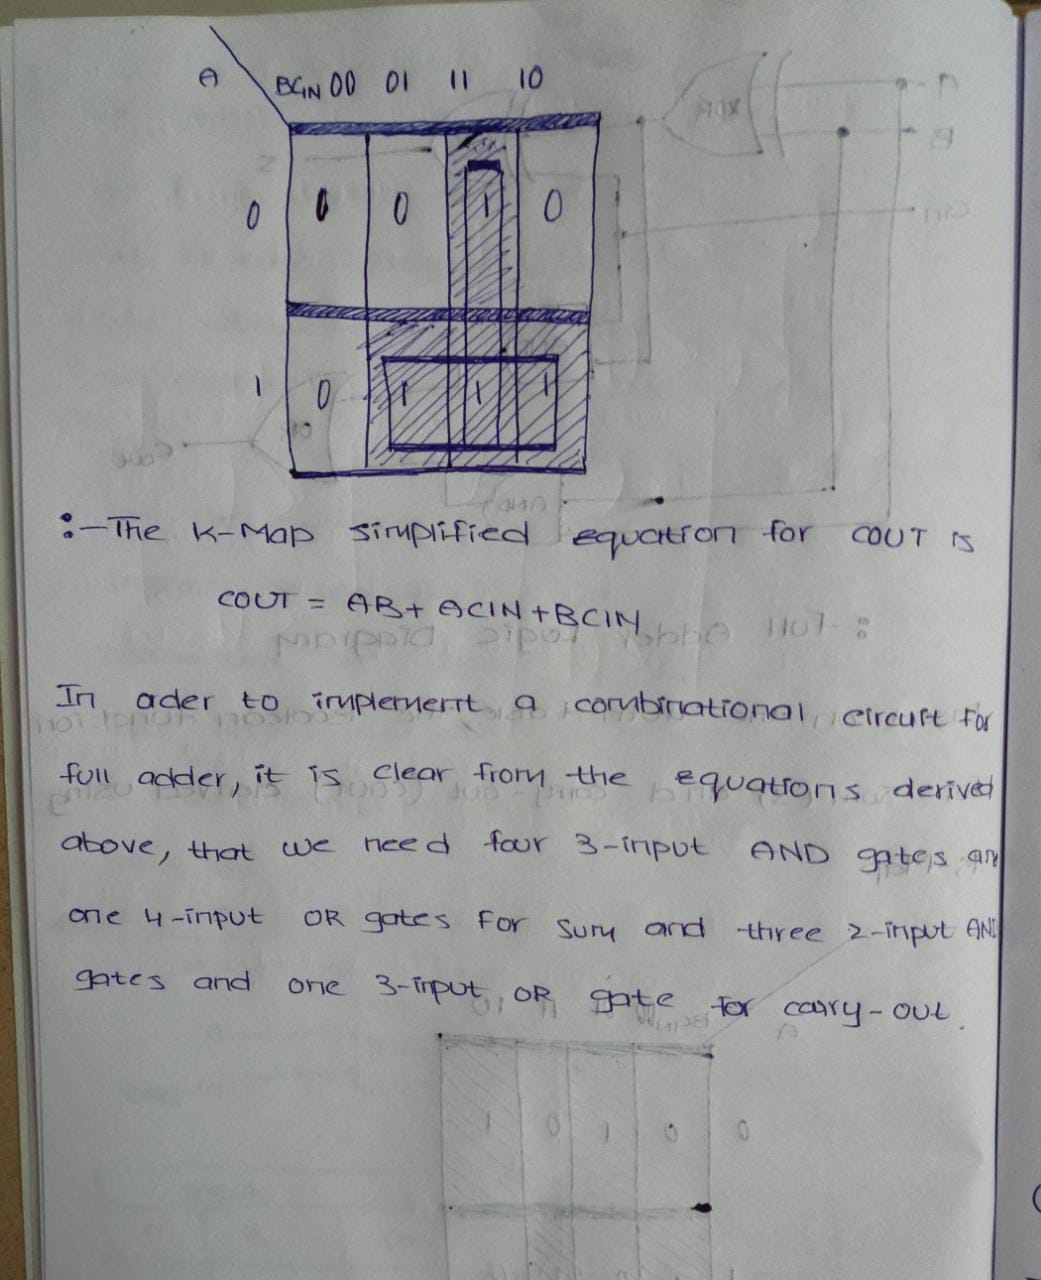 A BCIN 00 01 11 10
0 0 0 1 0
1 0 1 1 1
:- The K-Map simplified equation for COUT is
COUT = AB + ACIN + BCIN
In order to implement a combinational circuit for
full adder, it is clear from the equations derived
above, that we need four 3-input AND gates an
one 4-input OR gates for sum and three 2-input AND
gates and one 3-input OR gate for carry-out.